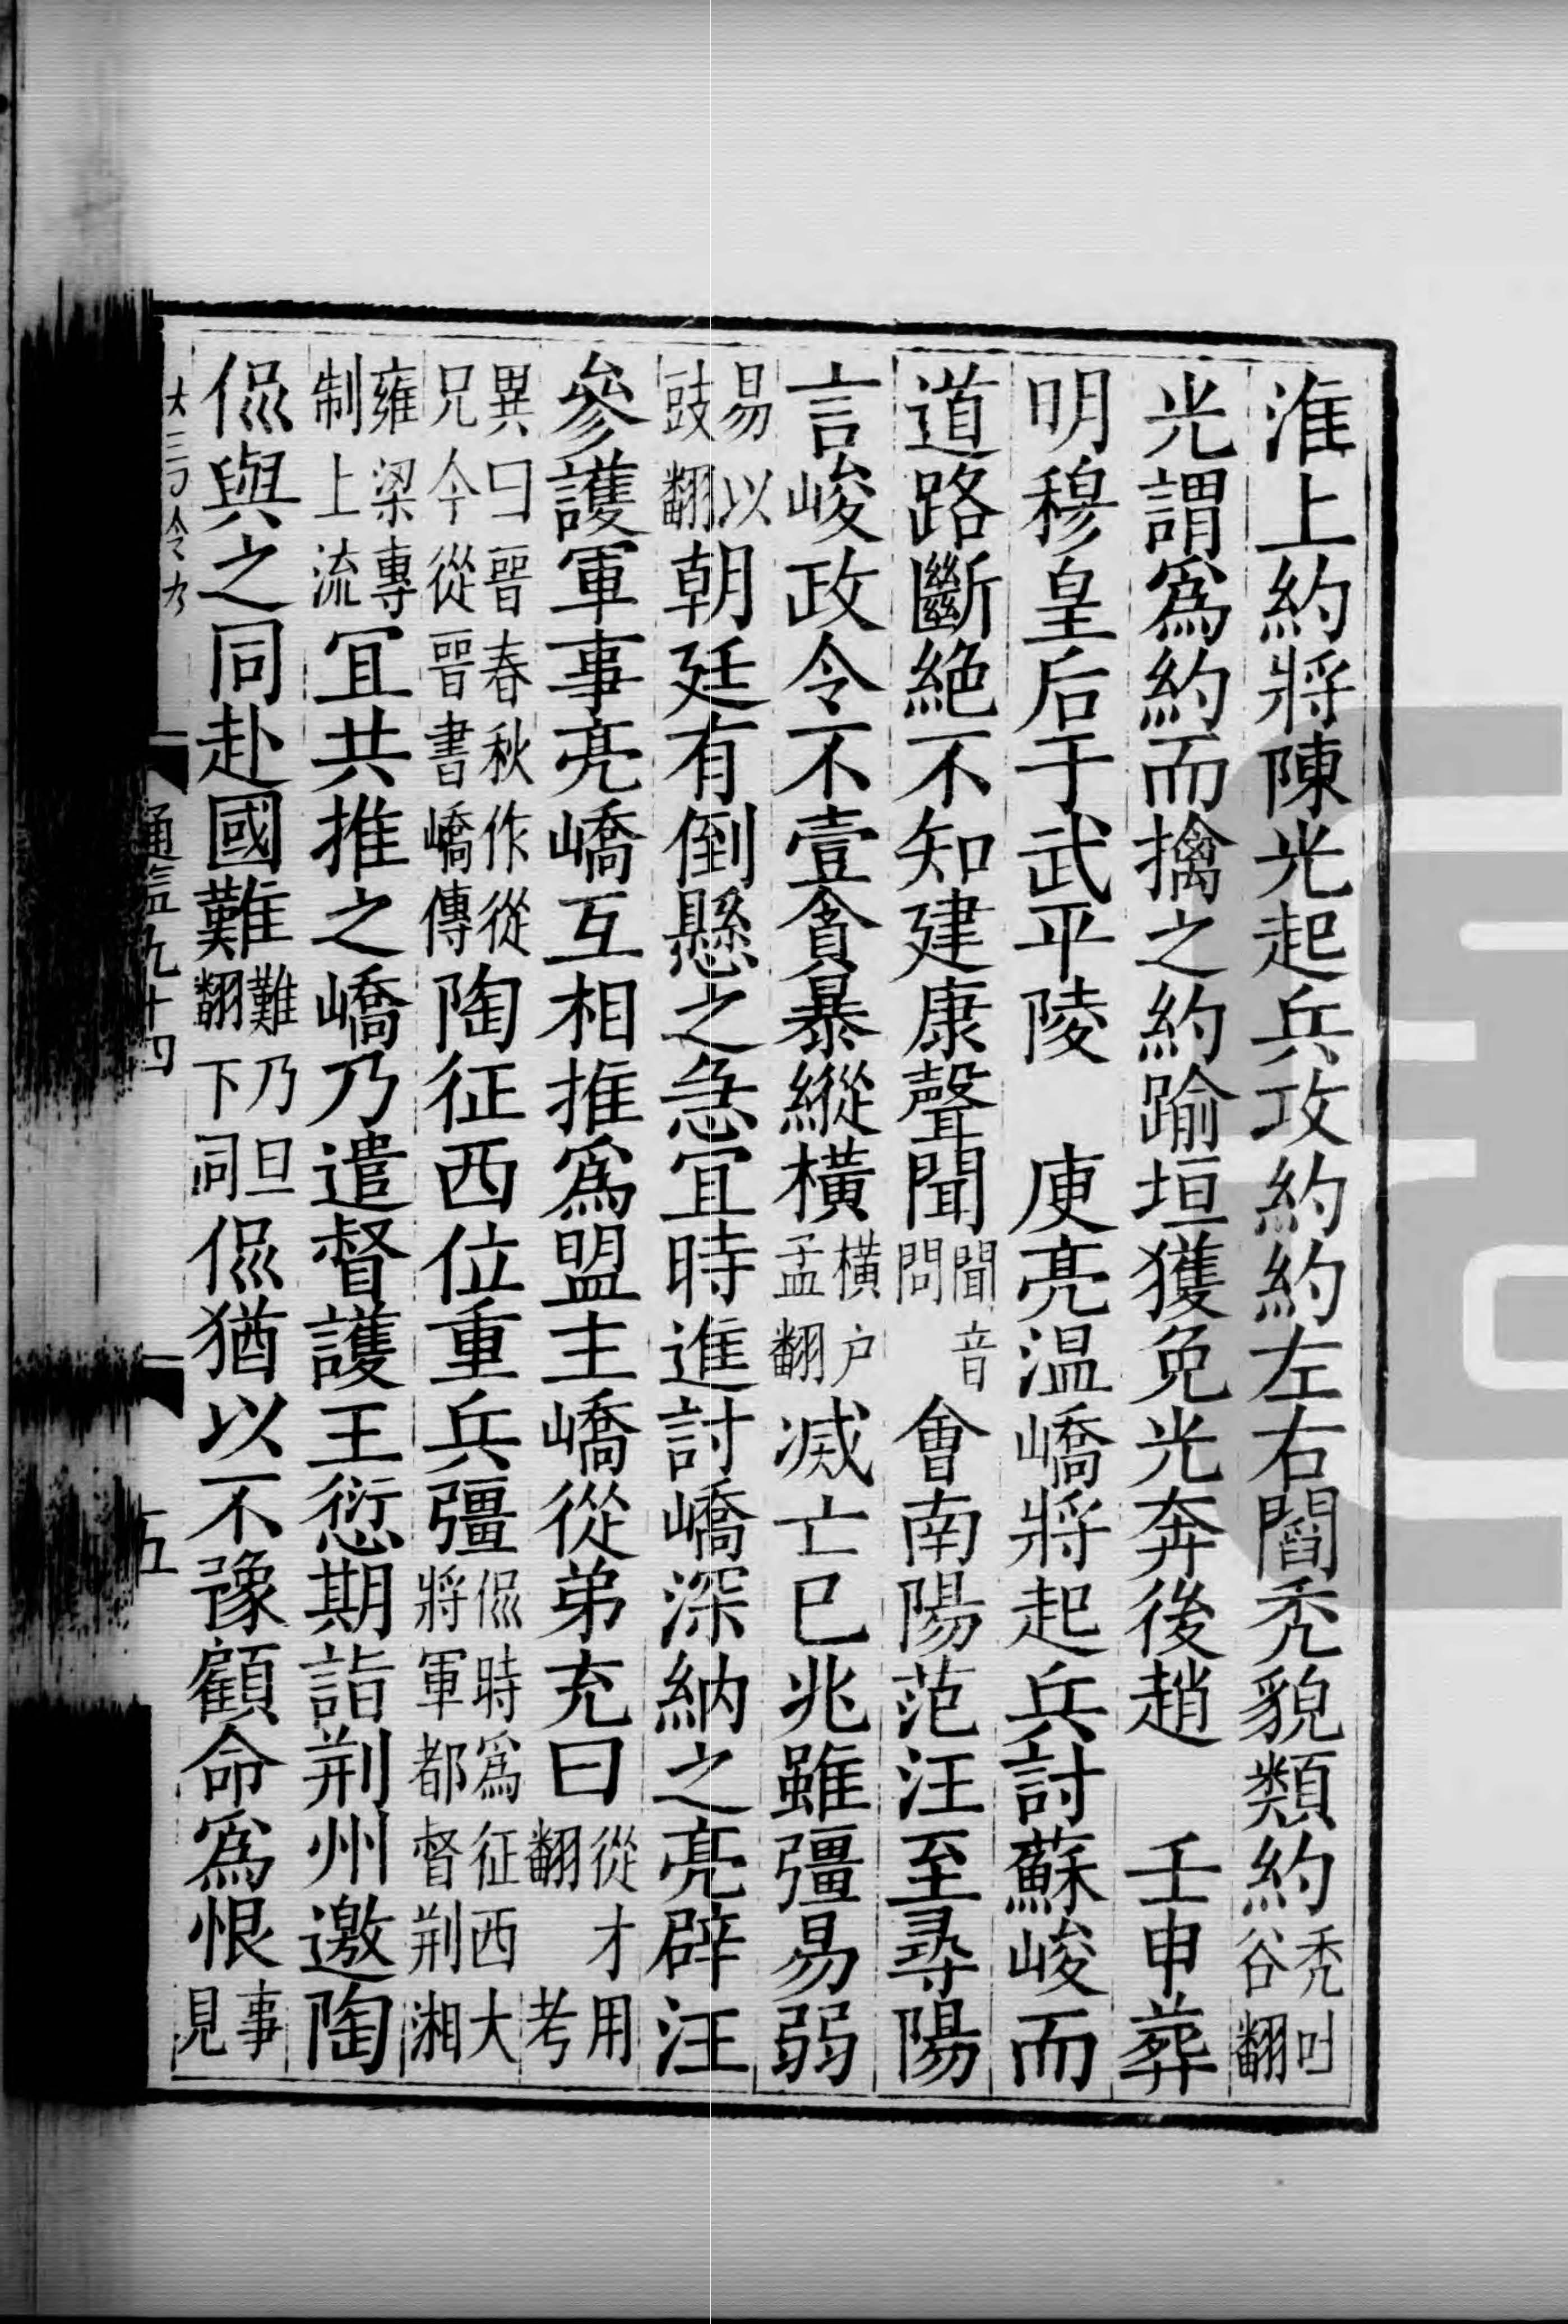 淮上約將陳光起兵攻約約左右閻秃貌類約秃吐谷翻
光謂爲約而擒之約踰垣獲免光奔後趙　壬申葬
明穆皇后于武平陵　庾亮温嶠將起兵討蘇峻而
道路斷絶不知建康聲聞聞音問會南陽范汪至尋陽
言峻政令不壹貪暴縱橫橫户孟翻滅亡已兆雖彊易弱
易以豉翻朝廷有倒懸之急宜時進討嶠深納之亮辟汪
參護軍事亮嶠互相推爲盟主嶠從弟充曰從才用翻考
異曰晉春秋作從兄今從晉書嶠傳陶征西位重兵彊侃時爲征西大將軍都督荆湘
雍梁專制上流宜共推之嶠乃遣督護王愆期詣荆州邀陶
侃與之同赴國難難乃旦翻下同侃猶以不豫顧命爲恨事見
通鑑九十四
五